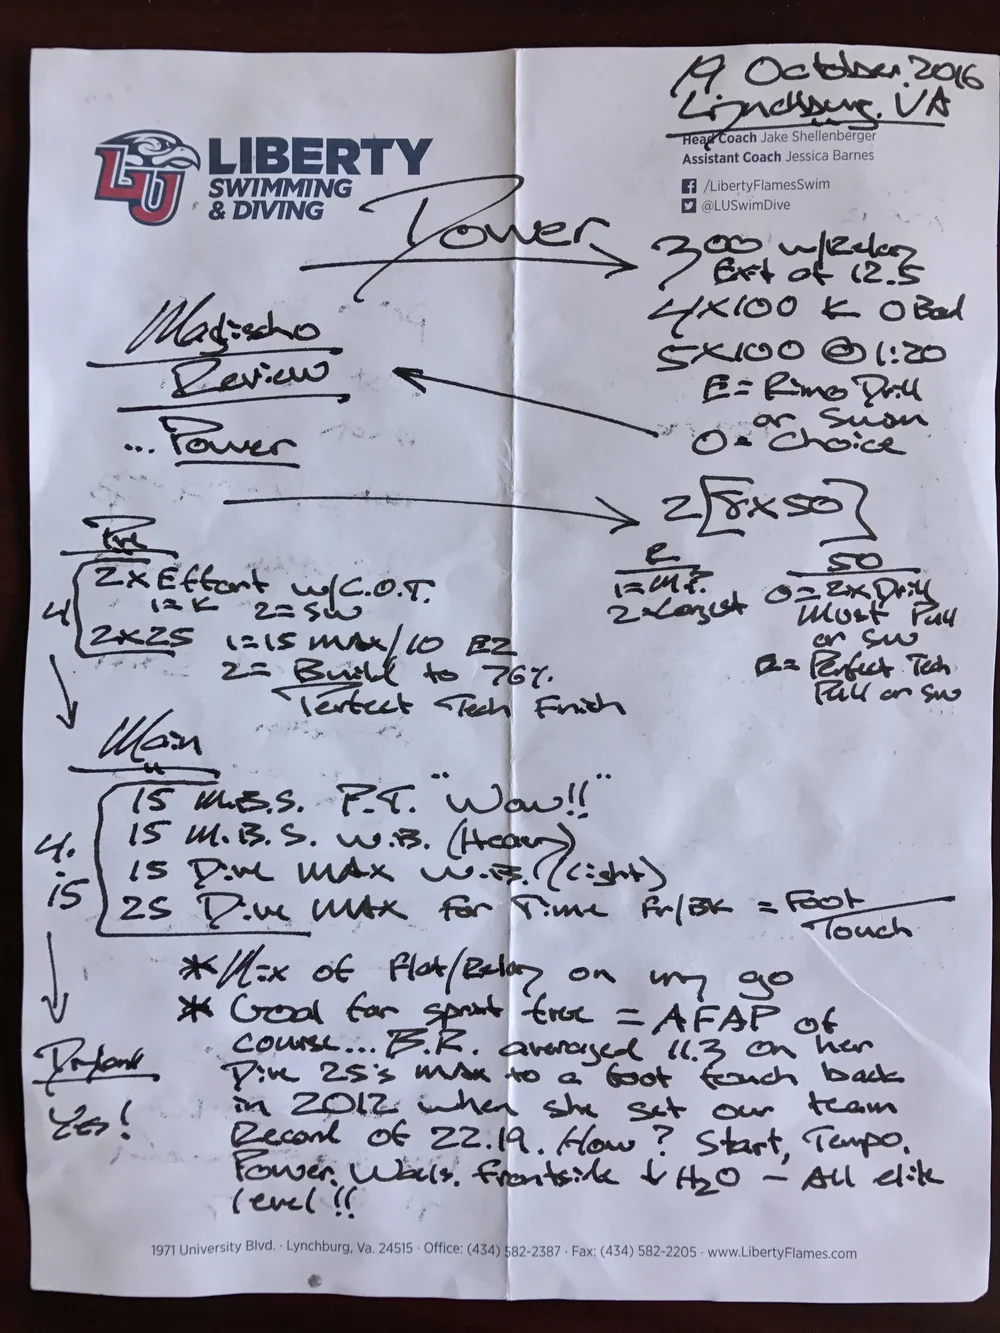 19 October. 2016
Lynchburg. VA
Head Coach Jake Shellenberger
Assistant Coach Jessica Barnes
/LibertyFlamesSwim
@LUSwimDive
LU
LIBERTY
SWIMMING
& DIVING
Power
300 w/Relay
Exit at 12.5
4x100 K O Bad
5x100 @ 1:20
E = Rimo Drill
or Swim
O = Choice
Maglischo
Review
... Power
2[8x50]
R
1 = M.P.
2 = Longest
50
O = 2x Drill
Must Pull
or SW
E = Perfect Tech
Pull or SW
Pre
4
2x Effort w/C.O.T.
1 = K 2 = SW
2x25 1 = 15 MAX/10 EZ
2 = Build to 76%.
Perfect Tech Finish
Main
4.
is
15 M.B.S. P.T. "Wow!!"
15 M.B.S. W.B. (Heavy)
15 Dive MAX W.B. (Light)
25 Dive MAX For Time Fr/BK = Foot
Touch
* Mix of Flat/Relay on my go
* Goal for sprint free = AFAP of
course... B.R. averaged 11.3 on her
Dive 25's max to a foot touch back
in 2012 when she set our team
Record of 22.19. How? Start, Tempo,
Power, Walls, Frontside ↓ H2O - All elite
level!!
Dryland
Yes!
1971 University Blvd. · Lynchburg, Va. 24515 · Office: (434) 582-2387 · Fax: (434) 582-2205 · www.LibertyFlames.com